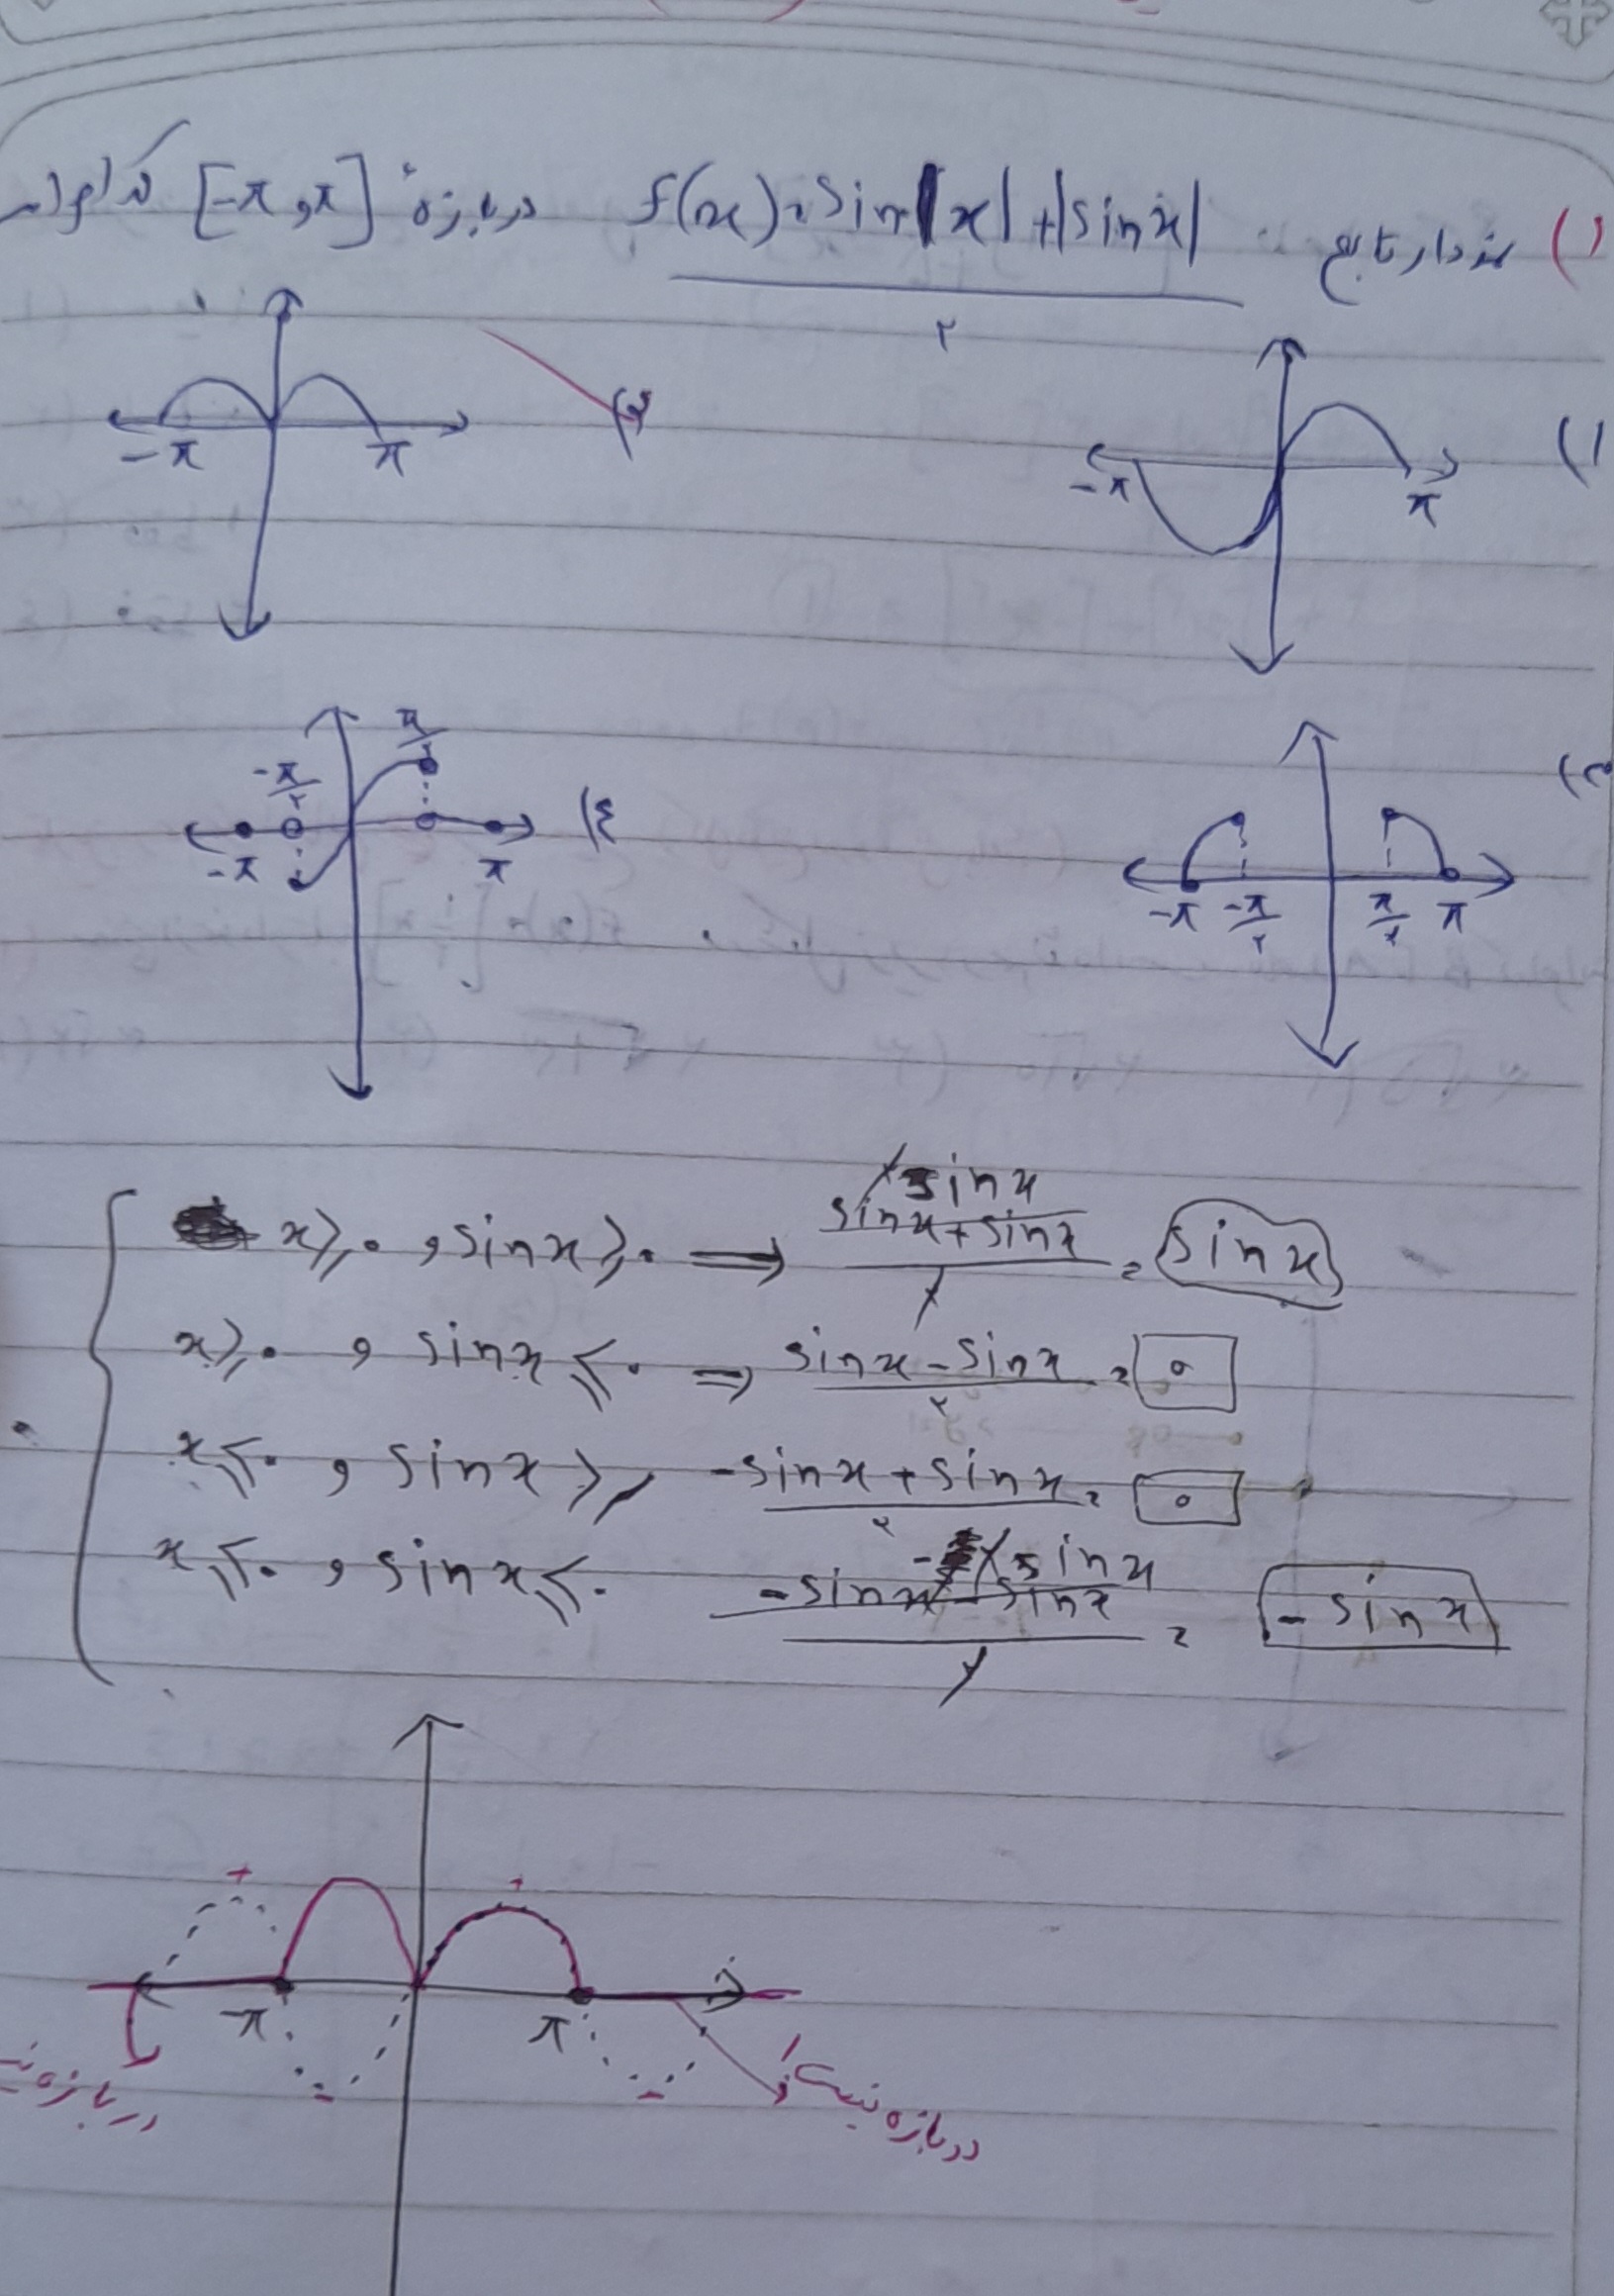 ۱) نمودار تابع f(x) = sin|x| + |sin x| / ۲ در بازهٔ [-π و π] کدام است
۱) -π π
۲) -π π
۳) -π -π/۲ π/۲ π
۴) -π -π/۲ π/۲ π
x ≥ ۰ , sin x ≥ ۰ ⟹ sin x + sin x / ۲ = ۲ sin x / ۲ = sin x
x ≥ ۰ , sin x ≤ ۰ ⟹ sin x - sin x / ۲ = ۰
x ≤ ۰ , sin x ≥ -sin x + sin x / ۲ = ۰
x ≤ ۰ , sin x ≤ ۰ -sin x - sin x / ۲ = -۲ sin x / ۲ = - sin x
+ +
-π π
- -
در بازه نیست
در بازه